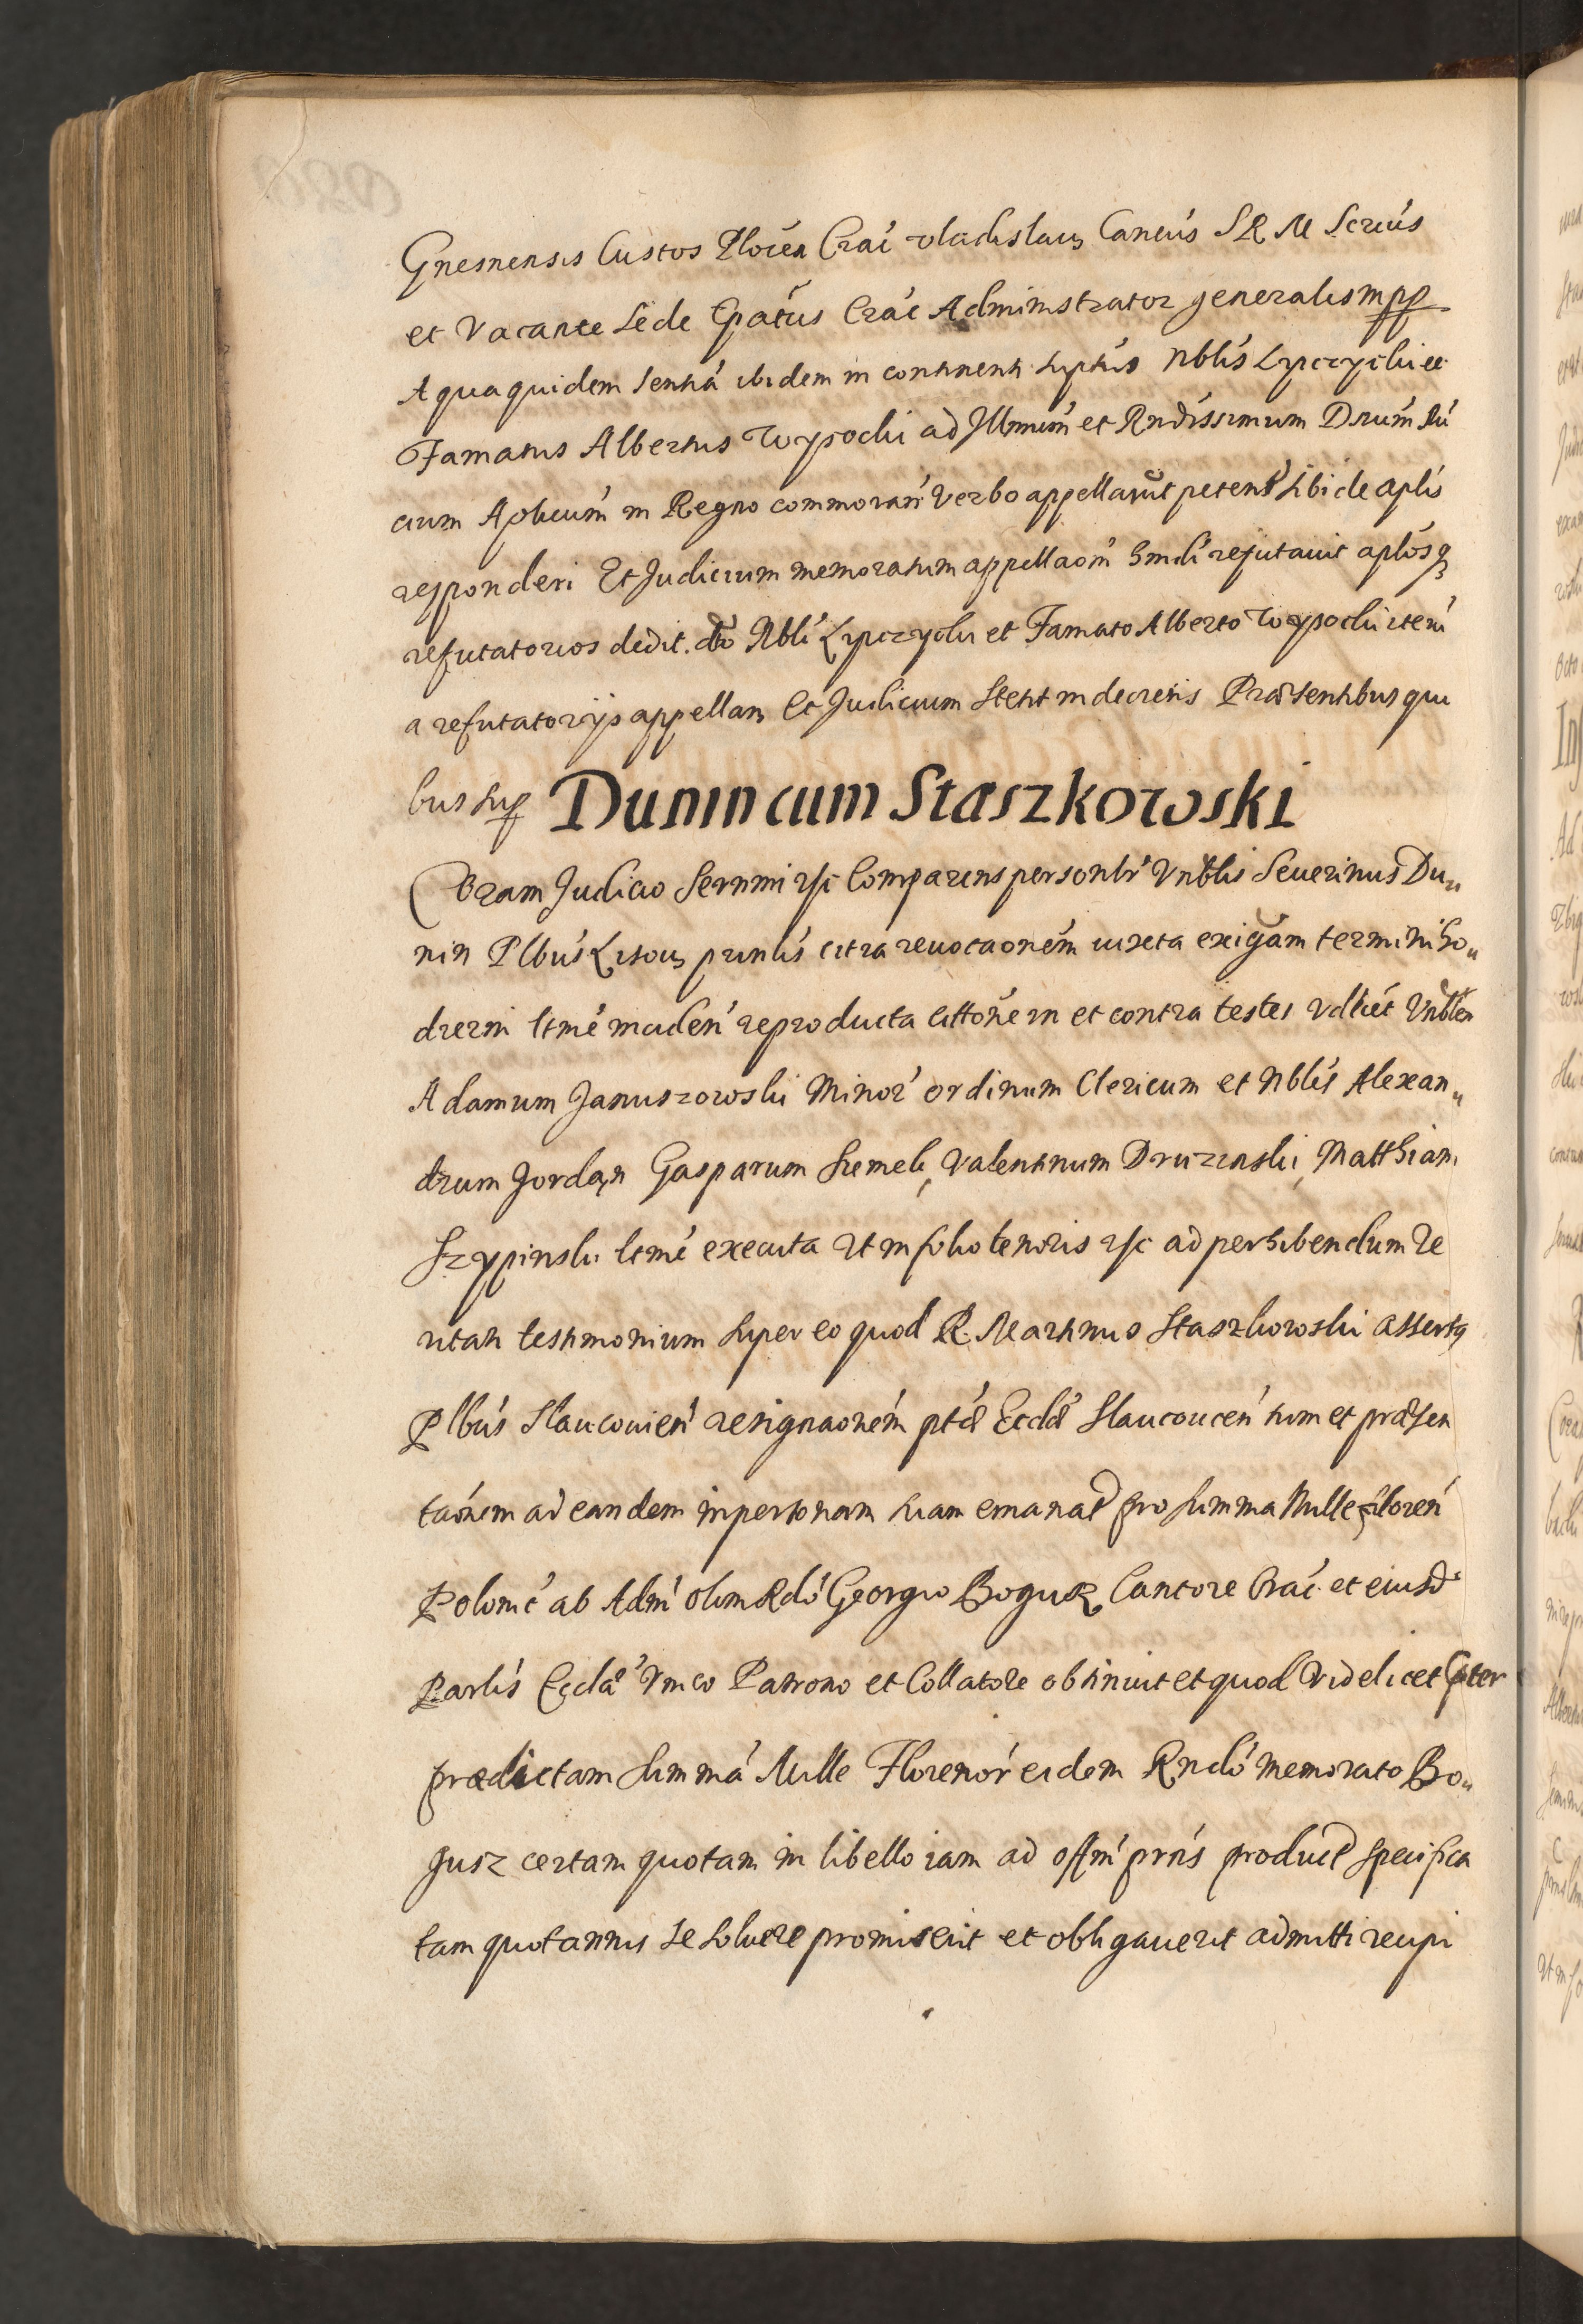 Gnesnensis Custos Plocen Crać Vladislaus Cancus S R M Scrius
et Vacante Sede Epatus Crac Administrator generalis mpp
A qua quidem sentia ibidem in continenti suptus Nblis Lypczyski et
Famatus Albertus Wysocki ad Illmum et Rndissimum Dnum Nu
cium Aplicum in Regno commoran Verbo appellarut petent sibi de aplis
responderi Et Judicium memoratum appellaom hmdi refutauit aplosq
refutatorios dedit. dto Nbli Lypczyski et Famato Alberto Wysocki item
a refutatorijs appellan Et Judicium Stetit in decretis Præsentibus qui
bus sup
Dunin cum Staszkowski
Coram Judicio Sernmi rsc Comparens personlr Vnblis Seuerinus Du„
nin Plbus Lisou prinlis citra reuocaonem iuxta exigam termini ho„
dierni ltme inciden reproducta cittone in et contra testes Vdlict Vnblem
Adamum Januszowski Minor ordinum Clericum et Nblis Alexan„
drum Jordan Gasparum Siemek, Valentinum Druzinski, Matthiam
Szypinski ltme executa Vt in folio tenoris rsc ad perhibendum Ve
ritati testimonium super eo quod R. Martinus Staszkowski assertq
Plbus Slauconien resignaonem ptæ Ecclæ Slauconcen tum et præsen
taonem ad eandem in personam suam emanat pro summa Mille floren
Polonic ab Adm olim Rdo Georgio Bogusz Cantore Crac et eiusd
Parlis Ecclæ Vnico Patrono et Collatore obtinuit et quod Videlicet pter
prædictam summa Mille Florenor eidem Rndo memorato Bo„
gusz certam quotam in libello iam ad offm prns product specifica
tam quotannis se soluere promiserit et obligauerit admitti recipi